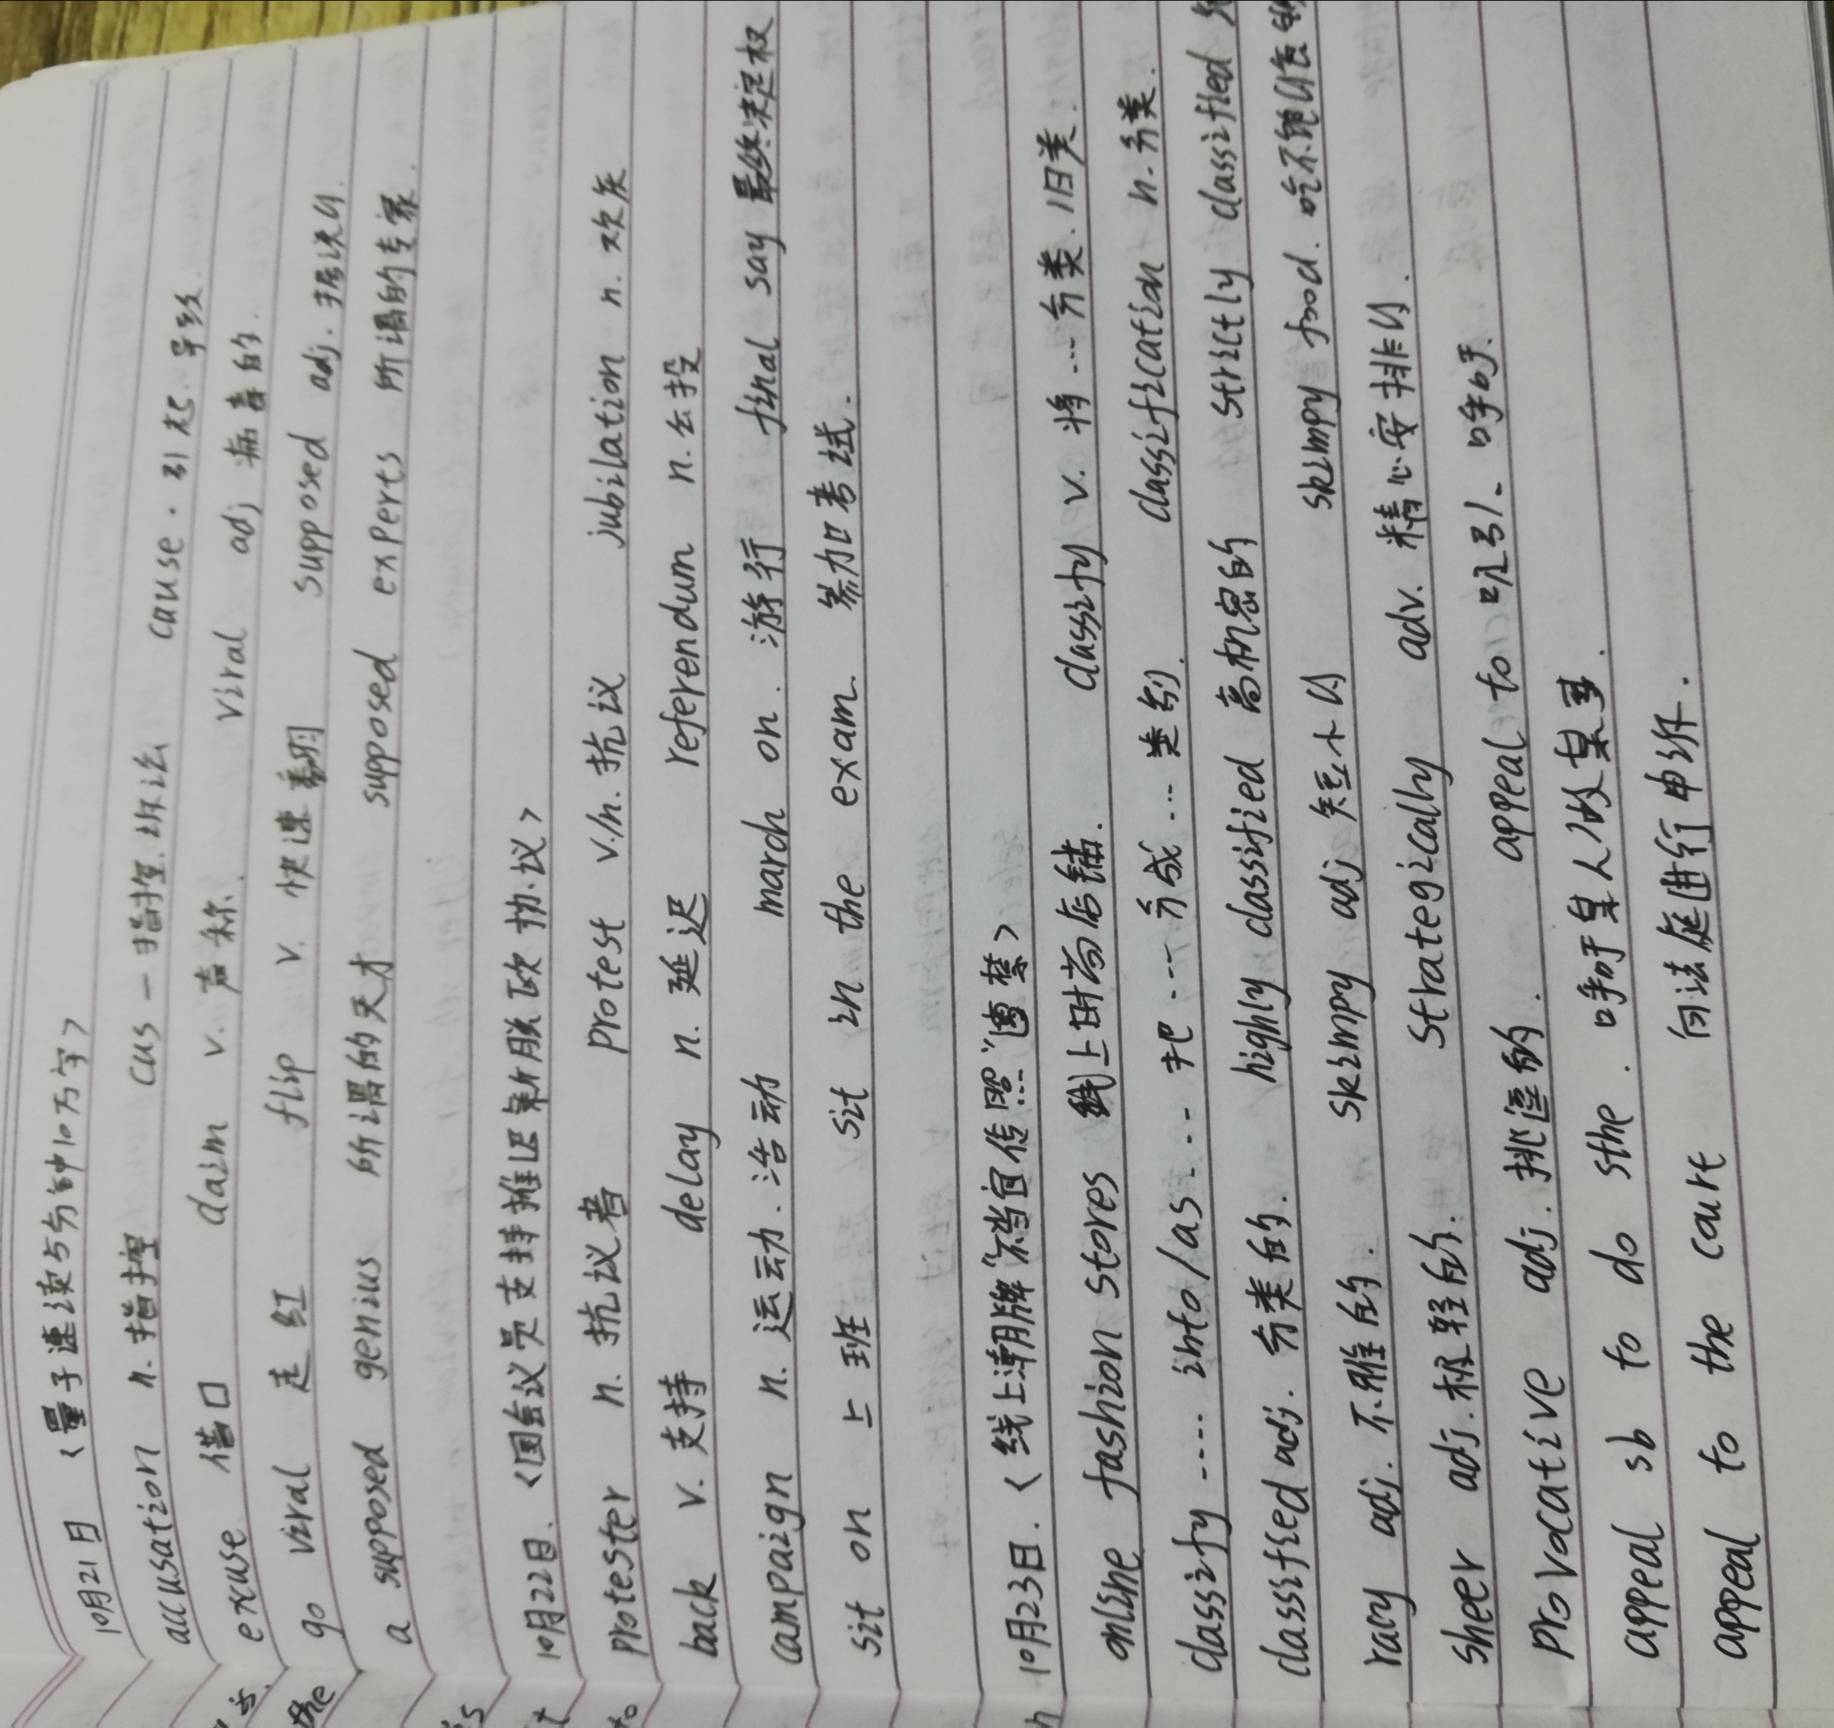 10月21日 〈量子速读5分钟10万字〉
accusation n. 指控 cus 一 指控.诉讼 cause. 引起.导致
excuse 借口 claim v. 声称. viral adj 病毒的.
go viral 走红 flip v. 快速翻 supposed adj. 据说的.
a supposed genius 所谓的天才 supposed experts 所谓的专家.
10月22日. 〈国会议员支持推迟新脱欧协议〉
protester n. 抗议者 protest v./n. 抗议 jubilation n. 欢庆
back v. 支持 delay n. 延迟 referendum n. 公投
campaign n. 运动.活动 march on. 游行 final say 最终决定权
sit on 上班 sit in the exam. 参加考试.
10月23日. 〈线上潮牌 宣传照"遭禁〉
online fashion stores 线上时尚店铺. classify v. 将…分类.归类.
classify .... into/as... 把…分成…类别. classification n. 分类.
classified adj. 分类的. highly classified 高机密的 strictly classified
racy adj. 不雅的. skimpy adj 短小的 skimpy food. 吃不饱的
sheer adj. 极轻的. strategically adv. 精心安排的.
provocative adj. 挑逗的. appeal to 吸引、呼吁.
appeal sb to do sthe. 呼吁某人做某事.
appeal to the court 向法庭进行申诉.